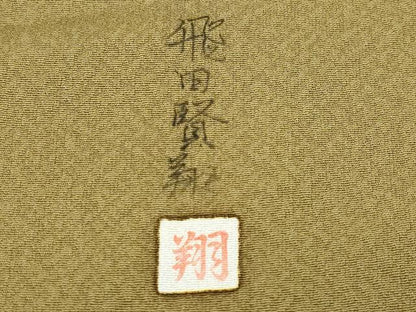 飛田賢翔
翔